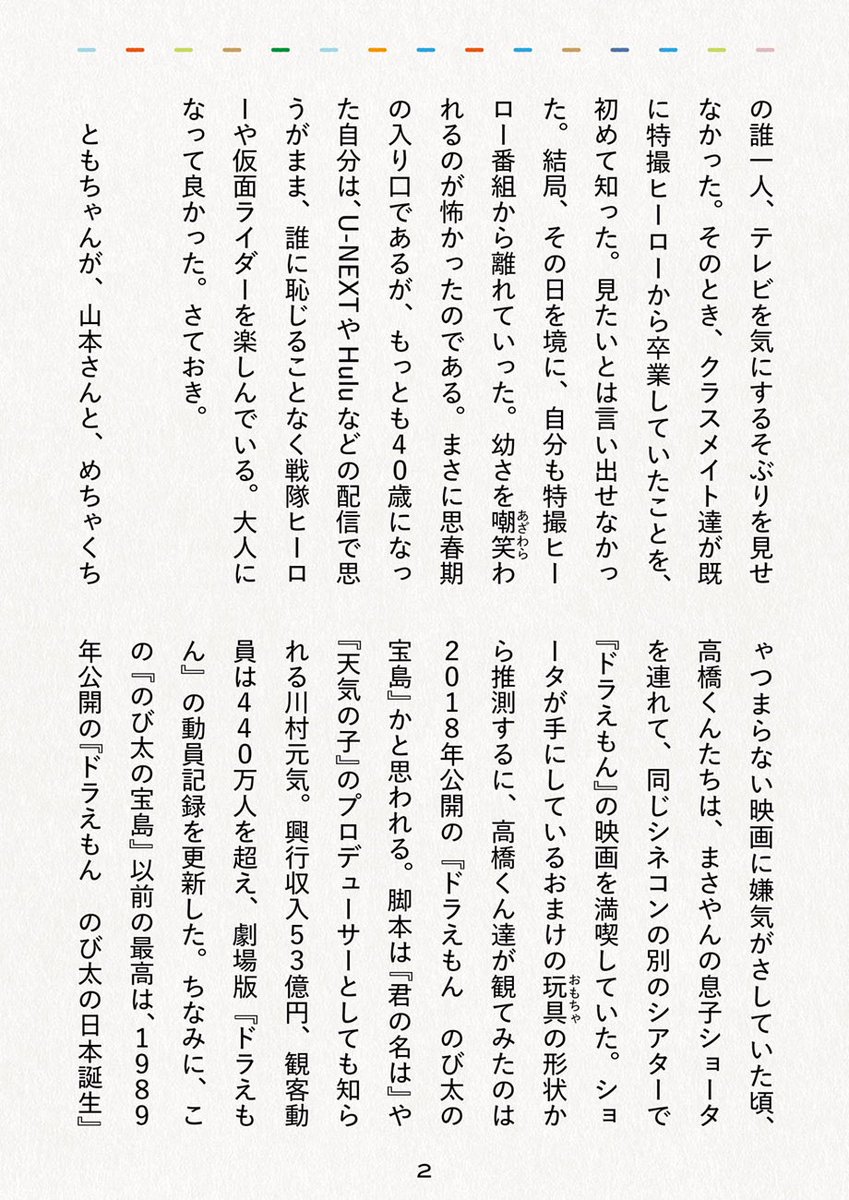 の誰一人、テレビを気にするそぶりを見せ
なかった。そのとき、クラスメイト達が既
に特撮ヒーローから卒業していたことを、
初めて知った。見たいとは言い出せなかっ
た。結局、その日を境に、自分も特撮ヒー
ロー番組から離れていった。幼さを嘲笑わ
あざわら
れるのが怖かったのである。まさに思春期
の入り口であるが、もっとも40歳になっ
た自分は、U-NEXTやHuluなどの配信で思
うがまま、誰に恥じることなく戦隊ヒーロ
ーや仮面ライダーを楽しんでいる。大人に
なって良かった。さておき。
ともちゃんが、山本さんと、めちゃくち
ゃつまらない映画に嫌気がさしていた頃、
高橋くんたちは、まさやんの息子ショータ
を連れて、同じシネコンの別のシアターで
『ドラえもん』の映画を満喫していた。ショ
ータが手にしているおまけの玩具の形状か
おもちゃ
ら推測するに、高橋くん達が観てみたのは
2018年公開の『ドラえもん　のび太の
宝島』かと思われる。脚本は『君の名は』や
『天気の子』のプロデューサーとしても知ら
れる川村元気。興行収入53億円、観客動
員は440万人を超え、劇場版『ドラえも
ん』の動員記録を更新した。ちなみに、こ
の『のび太の宝島』以前の最高は、1989
年公開の『ドラえもん　のび太の日本誕生』
2